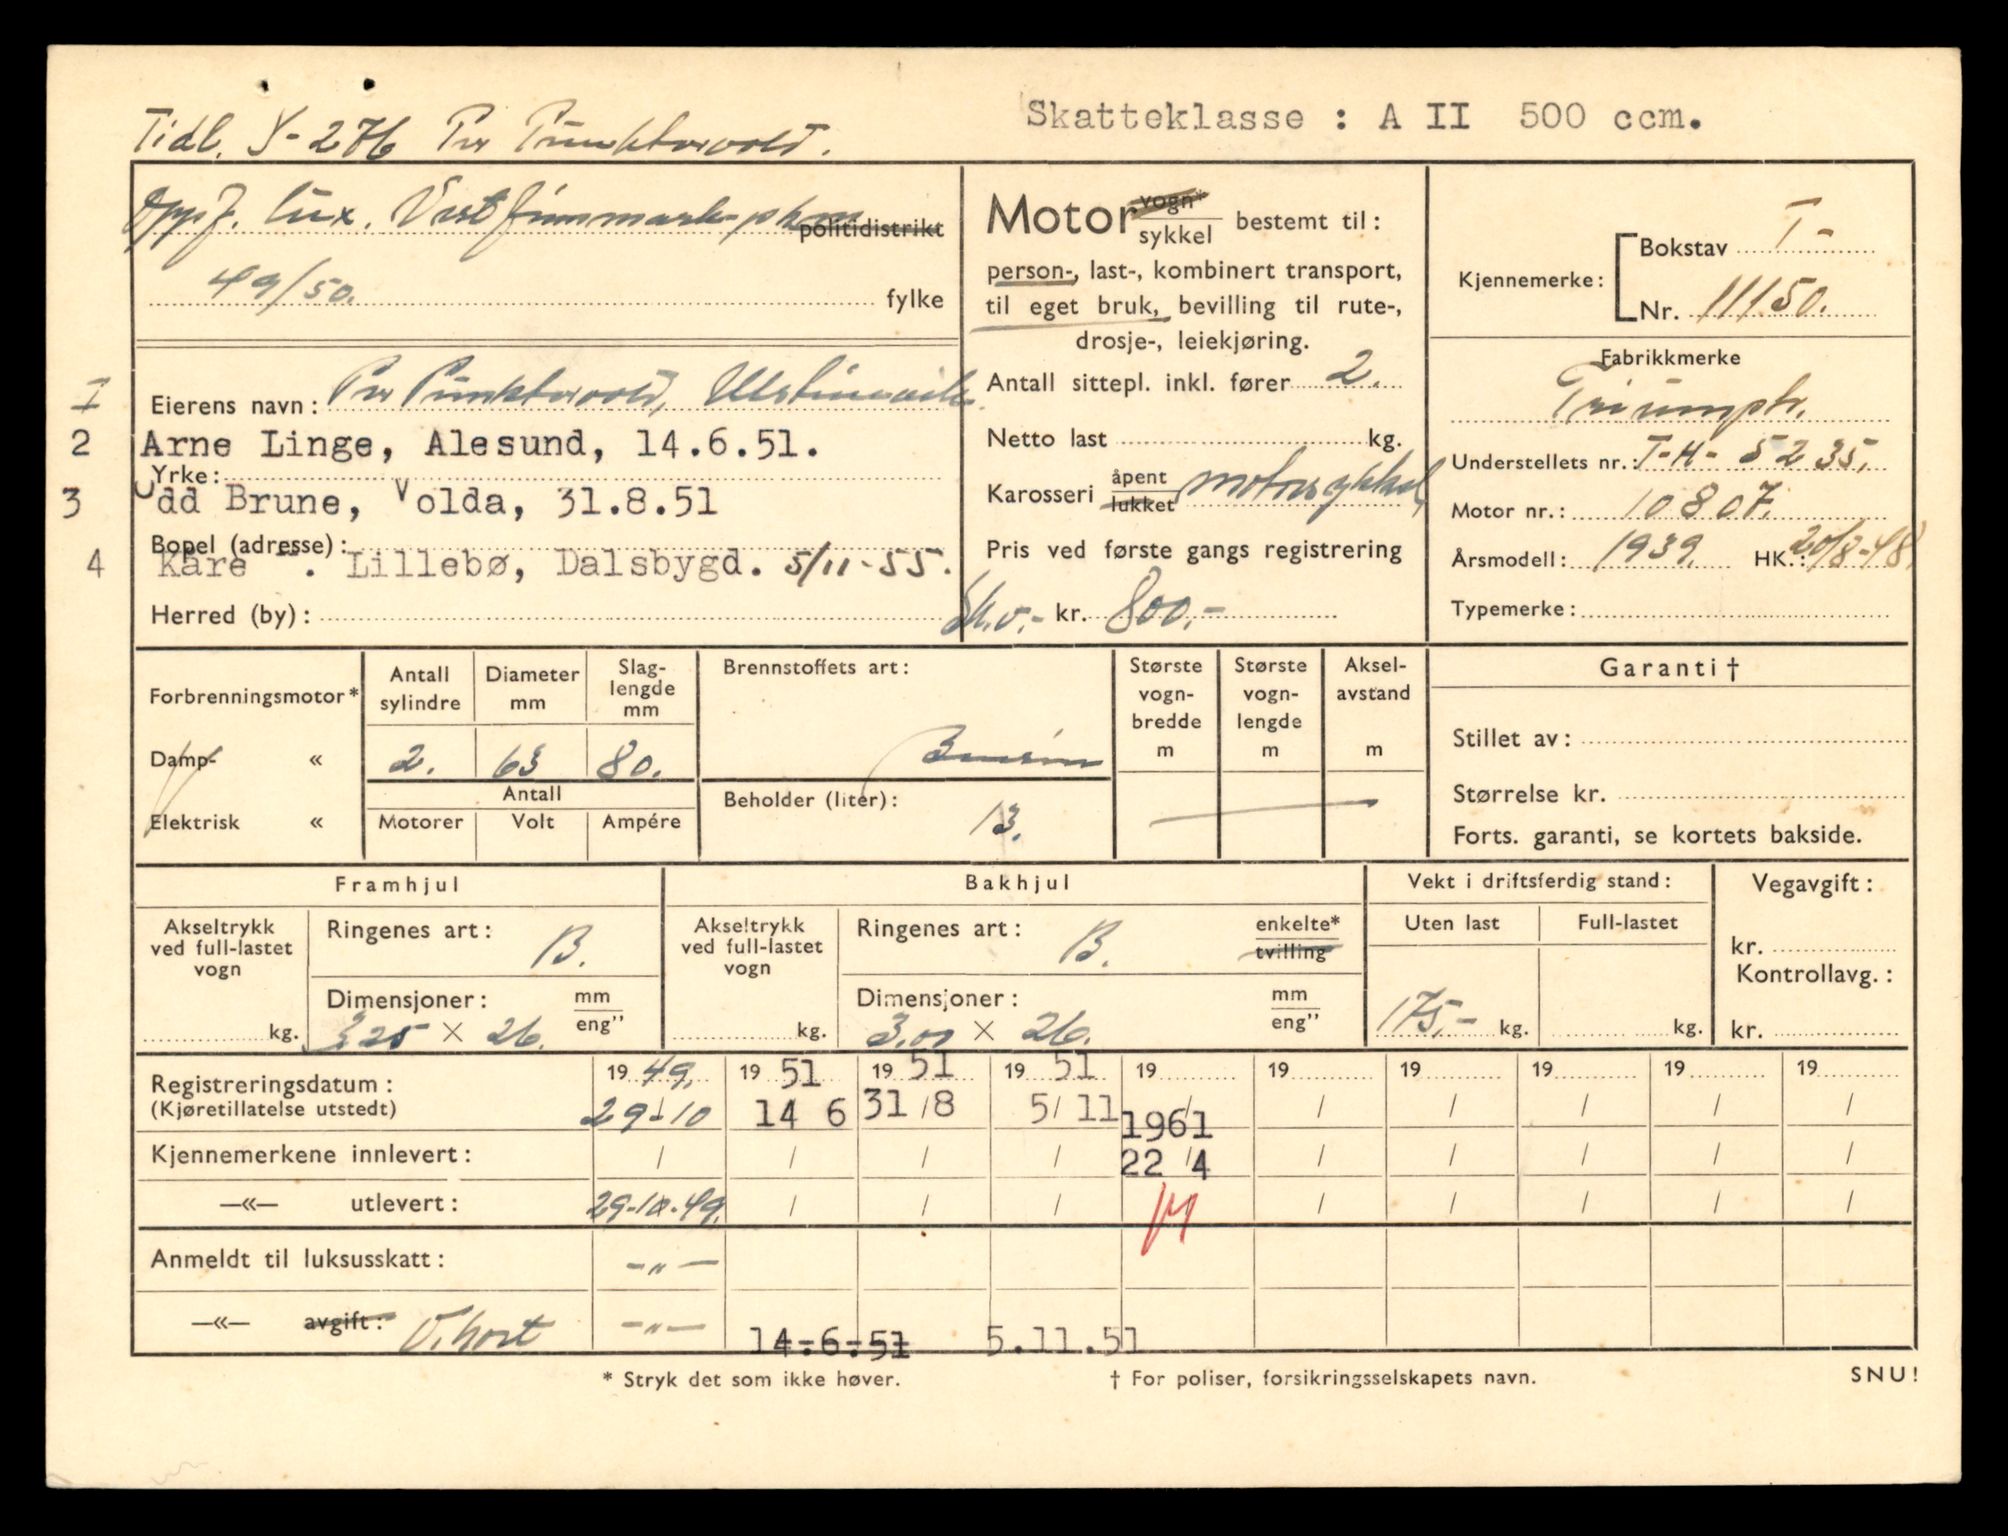 Tidl. Y-276 Per
Skatteklasse : A II 500 ccm.
lux. Vestfinnmark
politidistrikt
49/50.
fylke
Motor vogn* sykkel bestemt til:
person-, last-, kombinert transport,
til eget bruk, bevilling til rute-,
drosje-, leiekjøring.
Antall sittepl. inkl. fører 2.
Netto last kg.
Karosseri åpent lukket motorsykkel
Pris ved første gangs registrering
Sk.v.- kr. 800.-
Kjennemerke: Bokstav T-
Nr. 11150.
Fabrikkmerke
Triumph.
Understellets nr.: T-H- 5235.
Motor nr.: 10807.
Årsmodell: 1939. HK.: 20/8-48.
Typemerke:
I Eierens navn: Per
2 Arne Linge, Alesund, 14.6.51.
Yrke:
3 Odd Brune, Volda, 31.8.51
Bopel (adresse):
4 Kåre . Lillebø, Dalsbygd. 5/11-55.
Herred (by):
Forbrenningsmotor*
Damp- «
Elektrisk «
Antall sylindre
Diameter mm
Slag-lengde mm
2. 63 80.
Antall
Motorer Volt Ampére
Brennstoffets art:
Bensin
Beholder (liter):
13.
Største vogn-bredde m
Største vogn-lengde m
Aksel-avstand m
Garanti †
Stillet av:
Størrelse kr.
Forts. garanti, se kortets bakside.
Framhjul
Akseltrykk ved full-lastet vogn
kg.
Ringenes art: B.
Dimensjoner: mm eng”
3.25 × 26.
Bakhjul
Akseltrykk ved full-lastet vogn
kg.
Ringenes art: B. enkelte* tvilling
Dimensjoner: mm eng”
3.00 × 26.
Vekt i driftsferdig stand:
Uten last Full-lastet
175.- kg. kg.
Vegavgift:
kr.
Kontrollavg.:
kr.
Registreringsdatum: 19 49. 19 51 19 51 19 51 19 19 19 19 19 19
(Kjøretillatelse utstedt) 29-10 14 6 31/8 5/11 / / / / / /
1961
Kjennemerkene innlevert: / / / / 22/4 / / / / /
—«— utlevert: 29-10-49. / / / / / / / /
Anmeldt til luksusskatt: -"-
—«— avgift: V.kort -"- 14.6.51 5.11.51
* Stryk det som ikke høver.
† For poliser, forsikringsselskapets navn.
SNU!